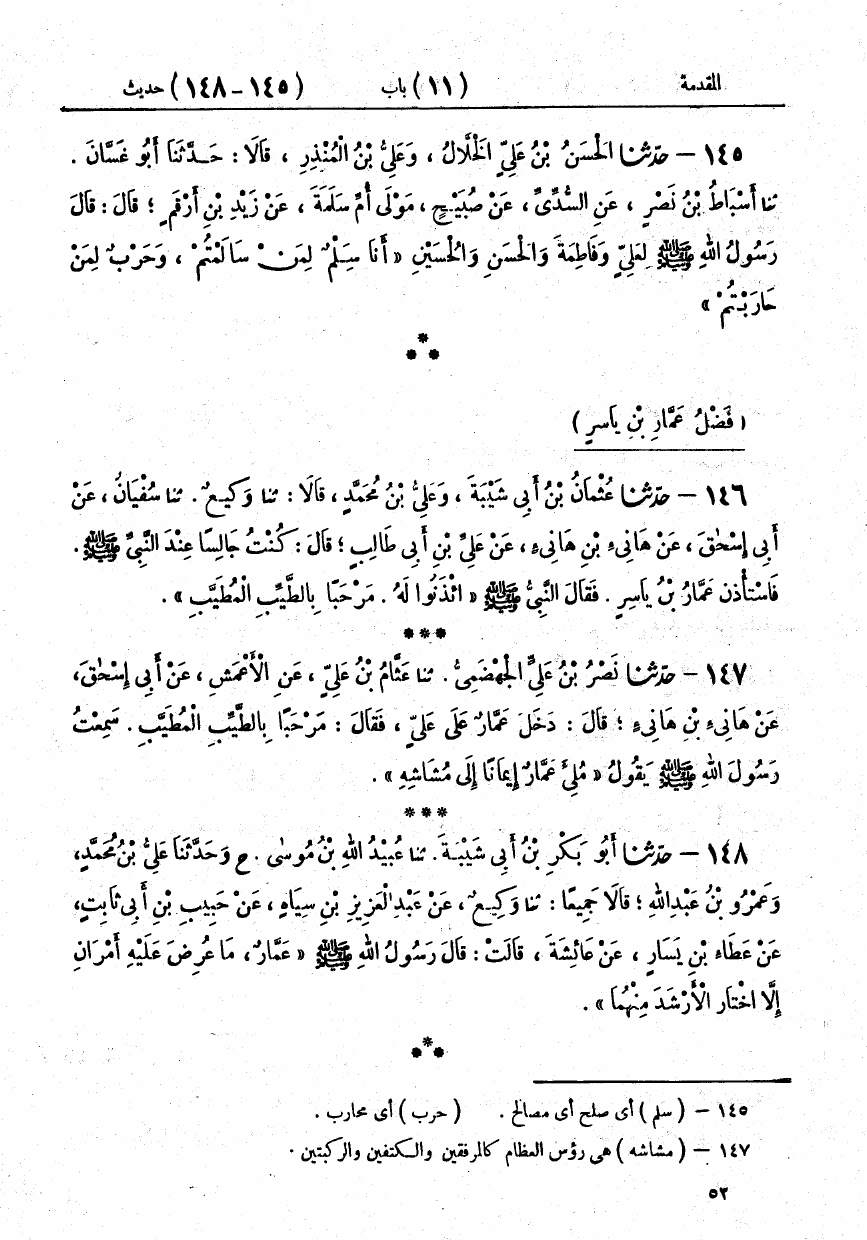 المقدمة (١١) باب (١٤٥-١٤٨) حديث
١٤٥ — حدّثنا الْحَسَنُ بْنُ عَلِيٍّ الْخَلَّالُ، وَعَلِيُّ بْنُ الْمُنْذِرِ، قَالَا: حَدَّثَنَا أَبُو غَسَّانَ.
ثنا أَسْبَاطُ بْنُ نَصْرٍ، عَنِ السُّدِّىِّ، عَنْ صُبَيْحٍ، مَوْلَى أُمِّ سَلَمَةَ، عَنْ زَيْدِ بْنِ أَرْقَمٍ؛ قَالَ: قَالَ
رَسُولُ اللهِ ﷺ لِعَلِيٍّ وَفَاطِمَةَ وَالْحَسَنِ وَالْحُسَيْنِ «أَنَا سِلْمٌ لِمَنْ سَالَمْتُمْ، وَحَرْبٌ لِمَنْ
حَارَبْتُمْ»
* * *
(فَضْلُ عَمَّارِ بْنِ يَاسرٍ)
١٤٦ — حدّثنا عُثْمَانُ بْنُ أَبِى شَيْبَةَ، وَعَلِىُّ بْنُ مُحَمَّدٍ، قَالَا: ثنا وَكِيعٌ. ثنا سُفْيَانُ، عَنْ
أَبِى إِسْحٰقَ، عَنْ هَانِىءِ بْنِ هَانِىءٍ، عَنْ عَلِىِّ بْنِ أَبِى طَالِبٍ؛ قَالَ: كُنْتُ جَالِسًا عِنْدَ النَّبِىِّ ﷺ.
فَاسْتَأْذن عَمَّارُ بْنُ يَاسِرٍ. فَقَالَ النَّبِىُّ ﷺ «ائْذَنُوا لَهُ. مَرْحَبًا بِالطَّيِّبِ الْمُطَيَّبِ».
***
١٤٧ — حدّثنا نَصْرُ بْنُ عَلِىٍّ الْجَهْضَمِىُّ. ثنا عَثَّامُ بْنُ عَلِىٍّ، عَنِ الْأَعْمَشِ، عَنْ أَبِى إِسْحٰقَ،
عَنْ هَانِىءِ بْنِ هَانِىءٍ؛ قَالَ: دَخَلَ عَمَّارٌ عَلَى عَلِىٍّ، فَقَالَ: مَرْحَبًا بِالطَّيِّبِ الْمُطَيَّبِ. سَمِعْتُ
رَسُولَ اللهِ ﷺ يَقُولُ «مُلِئَ عَمَّارٌ إِيمَانًا إِلَى مُشَاشِهِ».
***
١٤٨ — حدّثنا أَبُو بَكْرِ بْنُ أَبِى شَيْبَةَ. ثنا عُبَيْدُ اللهِ بْنُ مُوسٰى. ح وَحَدَّثَنَا عَلِىُّ بْنُ مُحَمَّدٍ،
وَعَمْرُو بْنُ عَبْدِ اللهِ؛ قَالَا جَمِيعًا: ثنا وَكِيعٌ، عَنْ عَبْدِ الْعَزِيزِ بْنِ سِيَاهٍ، عَنْ حَبِيبِ بْنِ أَبِى ثَابِتٍ،
عَنْ عَطَاءِ بْنِ يَسَارٍ، عَنْ عَائِشَةَ، قَالَتْ: قَالَ رَسُولُ اللهِ ﷺ «عَمَّارٌ، مَا عُرِضَ عَلَيْهِ أَمْرَانِ
إِلَّا اخْتَارَ الْأَرْشَدَ مِنْهُمَا».
* * *
١٤٥ — (سلم) أى صلح أى مصالح. (حرب) أى محارب.
١٤٧ — (مشاشه) هى رؤس العظام كالمرفقين والكتفين والركبتين.
٥٢